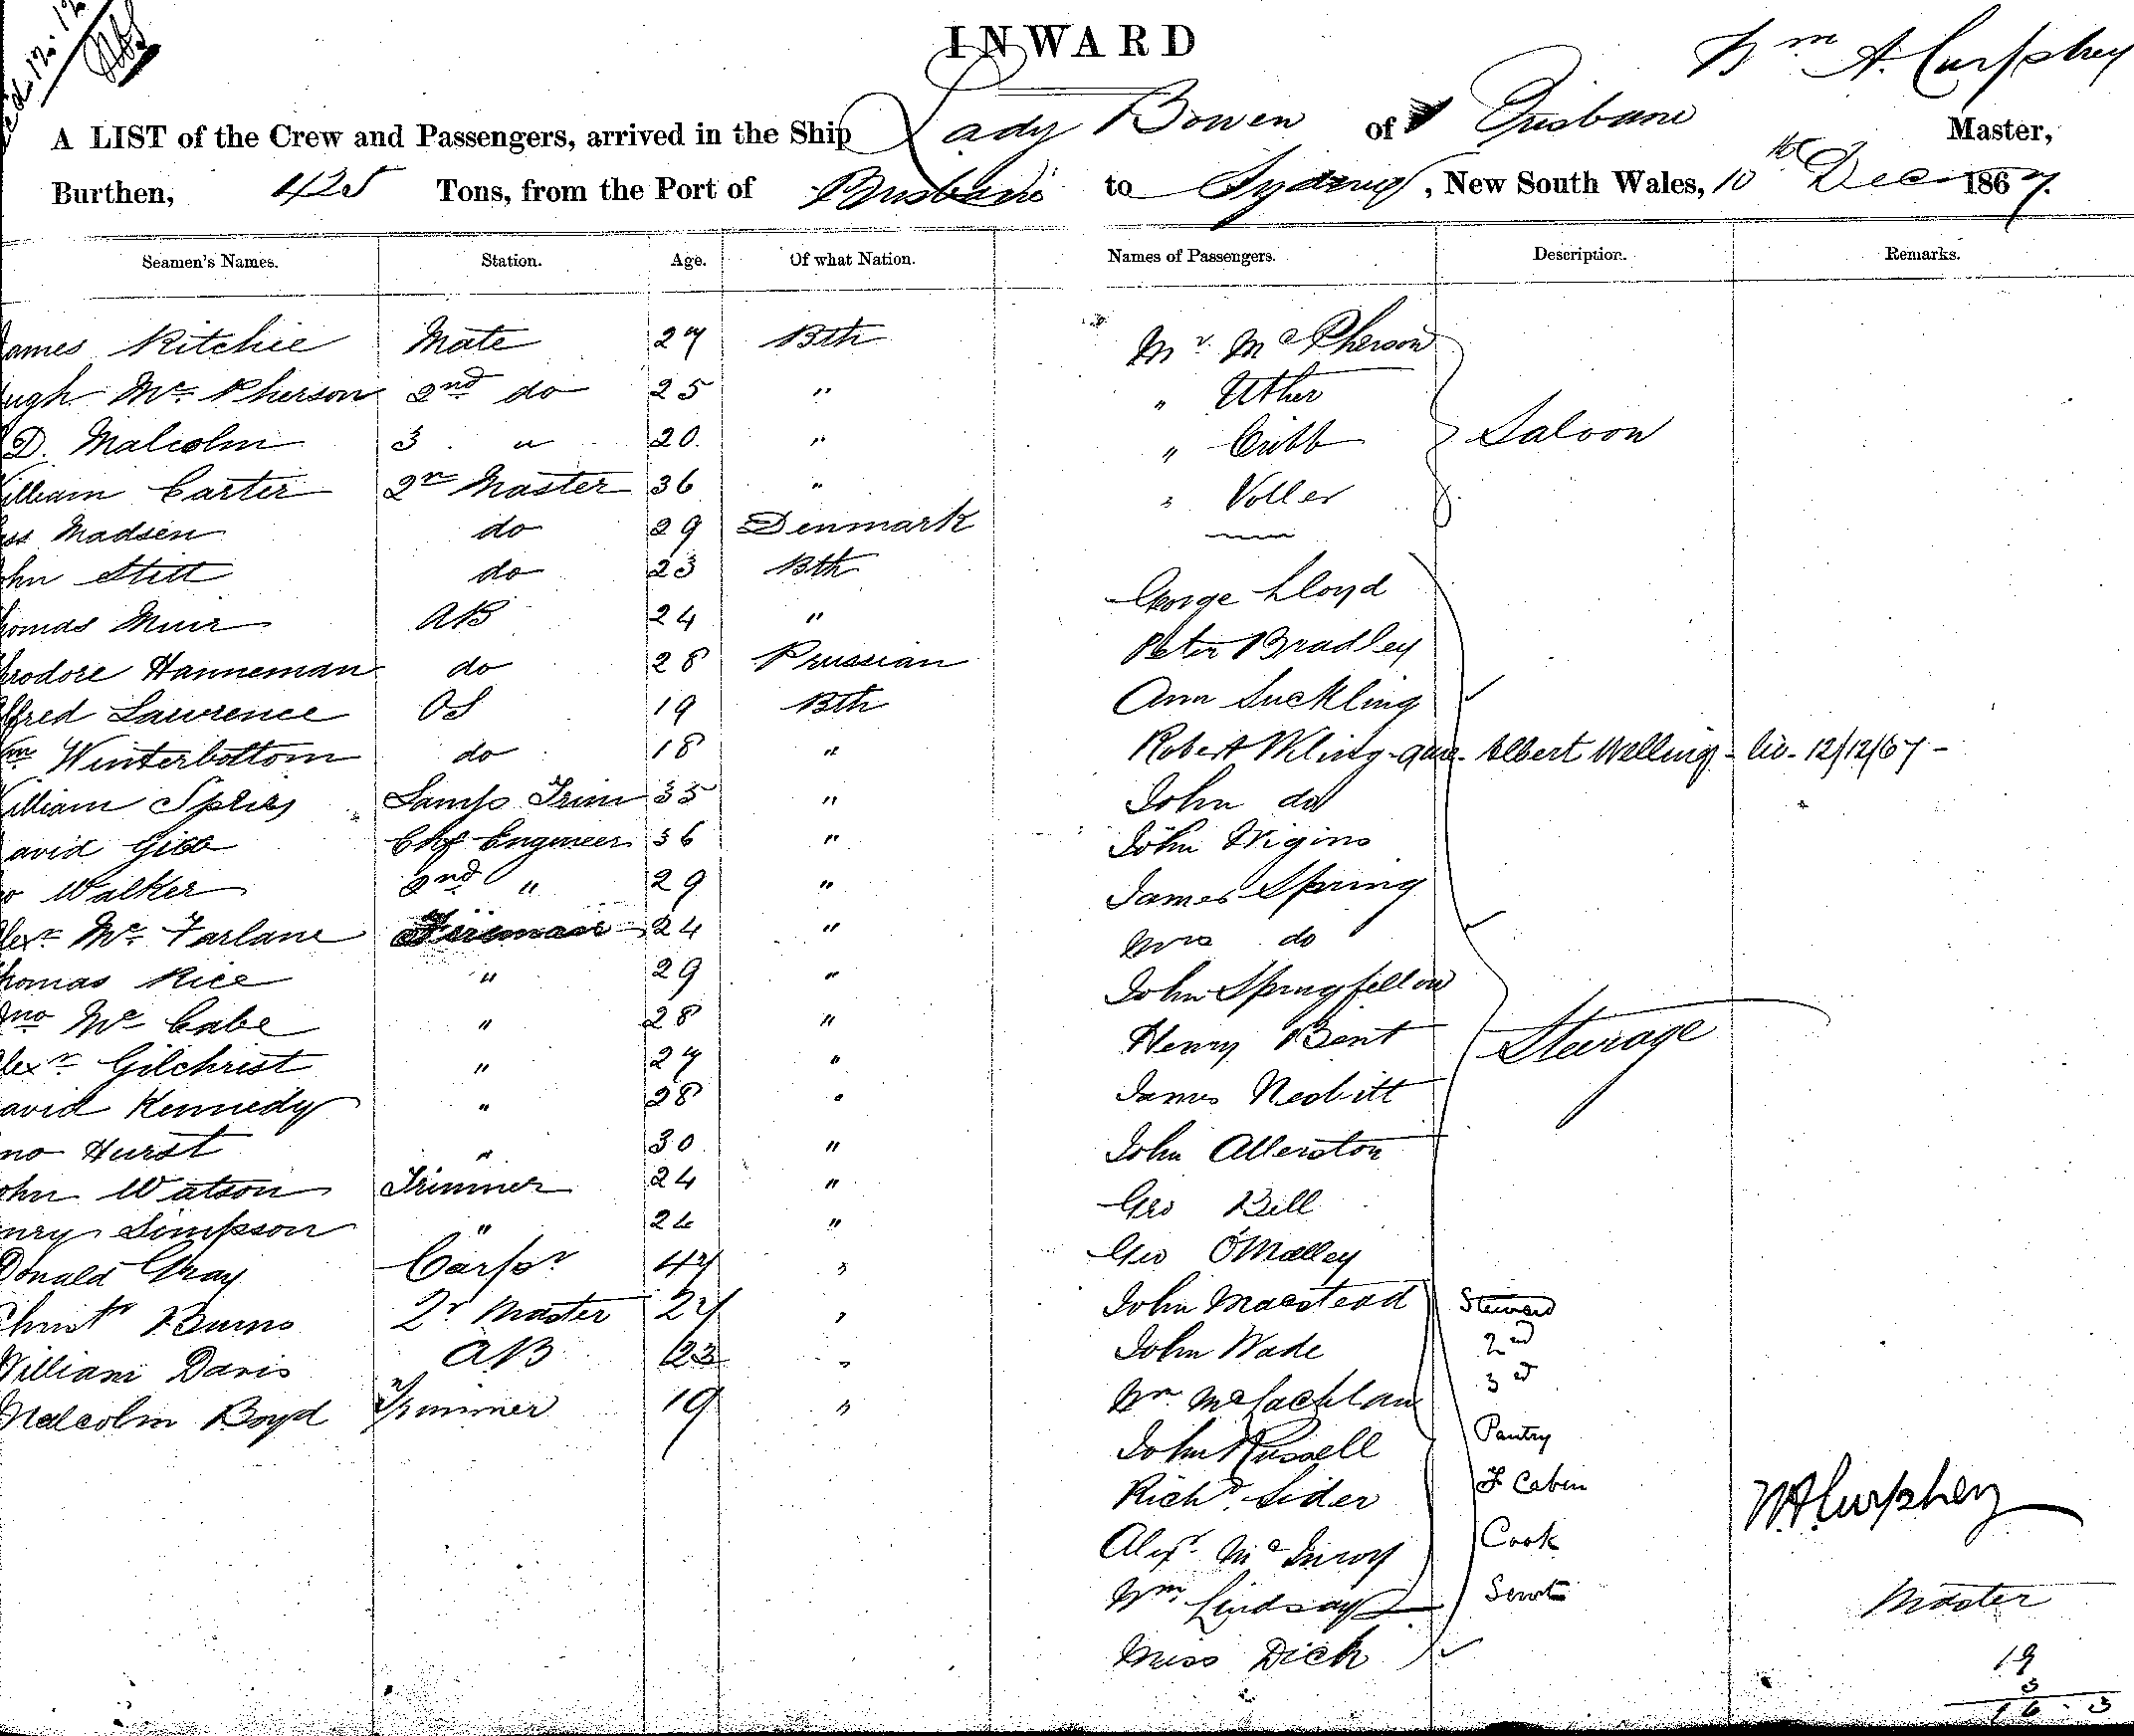 INWARD
Wm A. Curphey
A LIST of the Crew and Passengers, arrived in the Ship Lady Bowen of Brisbane Master,
Burthen, 425 Tons, from the Port of Brisbane to Sydney, New South Wales, 10th Dec 1867.
Seamen's Names. Station. Age. Of what Nation. Names of Passengers. Description. Remarks.
ames Ritchie Mate 27 Bth
ugh Mc Pherson 2nd do 25 "
D. Malcolm 3 " 20 "
illiam Carter 2r Master 36 "
Madsen do 29 Denmark
ohn Stitt do 23 Bth
homas Muir AB 24 "
odore Hanneman do 28 Prussian
lfred Lawrence OS 19 Bth
Wm Winterbottom do 18 "
illiam Lamp Trim 35 "
avid Gibb Chf Engineer 36 "
Walker 2nd " 29 "
lexr Mc Farlane Fireman 24 "
homas Rice " 29 "
Jno Mc Cabe " 28 "
lexr Gilchrist " 27 "
avid Kennedy " 28 "
no Hurst " 30 "
ohn Watson Trimmer 24 "
nry Simpson " 24 "
Donald Gray Carpr 47 "
Christr Burns 2r Master 27 "
William Davis AB 23 "
Malcolm Boyd Trimmer 19 "
Mr McPherson
" Uther
" Cribb Saloon
" Voller
George Lloyd
Peter Bradley
Ann Suckling
Robert Albert Welling - 12/12/67 -
John do
John Wigins
James Spring
Mrs do
John Springfellow
Henry Bent Steerage
James Nesbitt
John Allerston
Geo Bell
Geo O'Malley
John Steward
John Wade 2nd
Wm McLachlan 3rd
John Russell Pantry
Richd Sider F Cabin
Alexr McInroy Cook
Wm Lindsay
Miss Dick
W.A. Curphey
Master
19
3
16 - 3